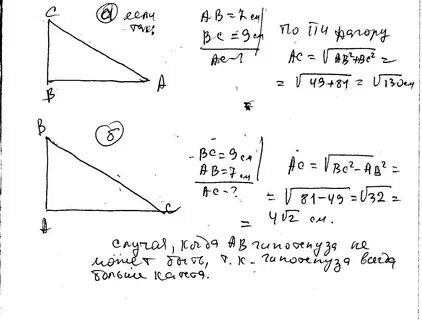 C
а) если
так:
B
A
AB = 7 см
BC = 9 см
AC - ?
По Пифагору
AC = √AB² + BC² =
= √49 + 81 = √130 см
B
б
A
C
BC = 9 см
AB = 7 см
AC - ?
AC = √BC² - AB² =
= √81 - 49 = √32 =
= 4√2 см.
случая, когда AB гипотенуза не
может быть, т.к. гипотенуза всегда
больше катета.